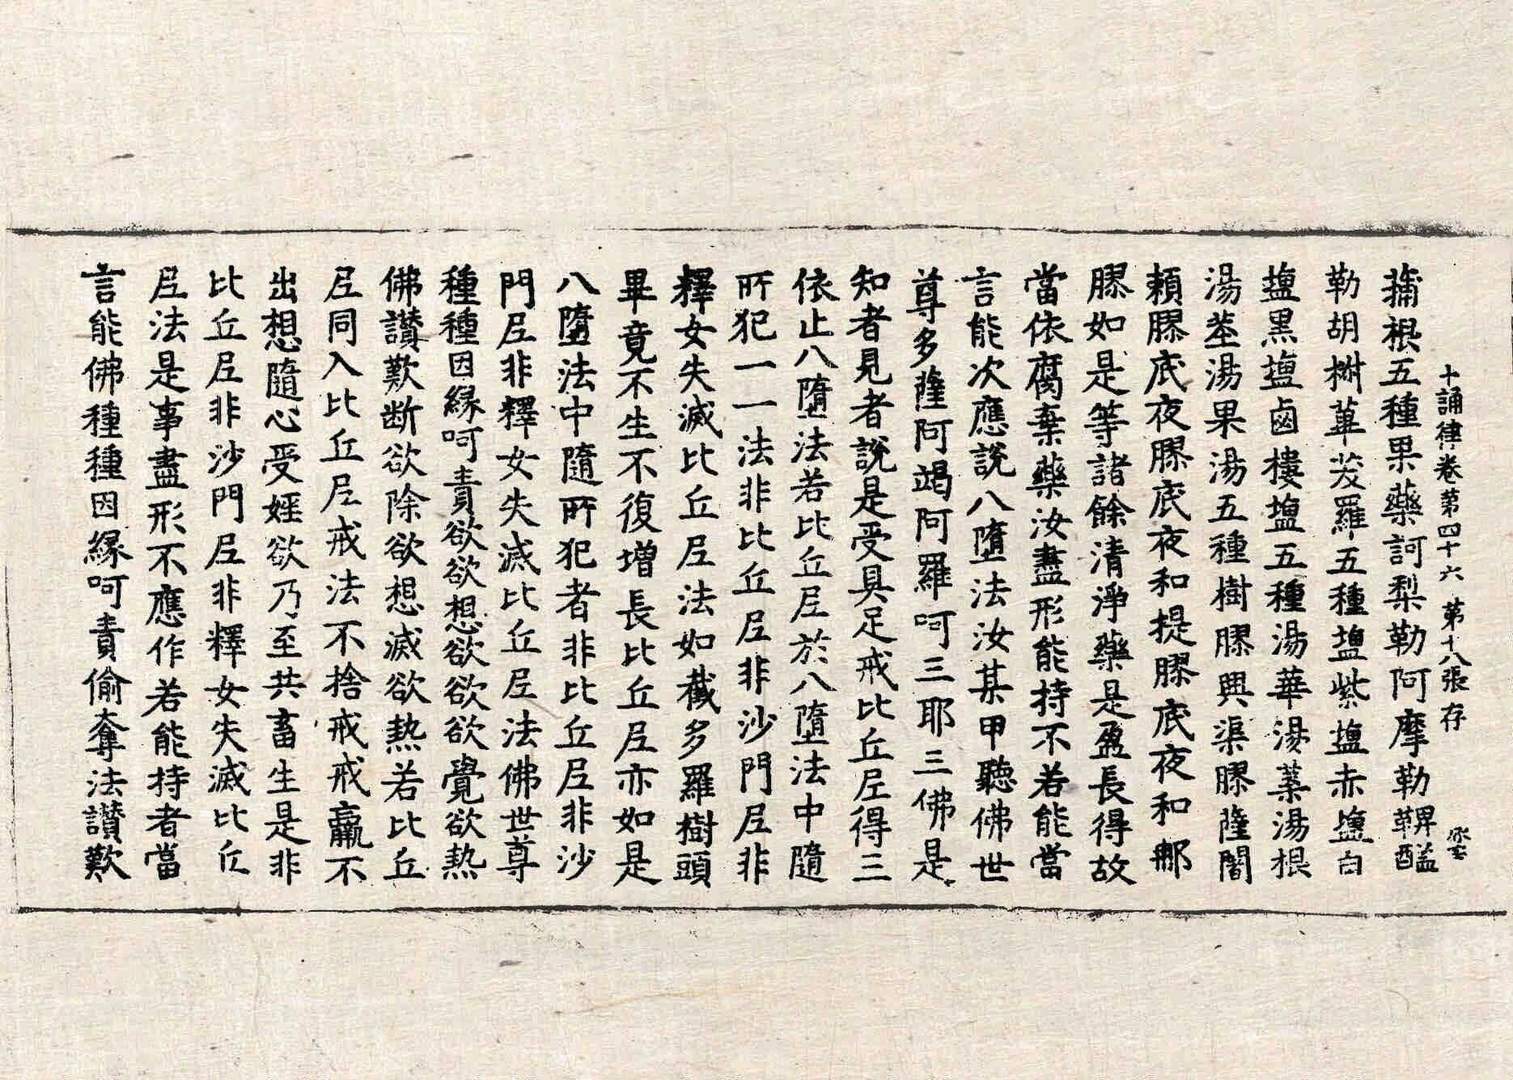 十誦律卷第四十六 第十八張 存
蒱根五種果藥訶梨勒阿摩勒鞞醯
勒胡椒蓽茇羅五種塩紫塩赤塩白
塩黑塩鹵樓塩五種湯華湯葉湯根
湯莖湯果湯五種樹膠興渠膠薩闍
賴膠底夜膠底夜和提膠底夜和那
膠如是等諸餘清淨藥是盈長得故
當依腐棄藥汝盡形能持不若能當
言能次應說八墮法汝某甲聽佛世
尊多薩阿竭阿羅呵三耶三佛是
知者見者說是受具足戒比丘尼得三
依止八墮法若比丘尼於八墮法中隨
所犯一一法非比丘尼非沙門尼非
釋女失滅比丘尼法如截多羅樹頭
畢竟不生不復增長比丘尼亦如是
八墮法中隨所犯者非比丘尼非沙
門尼非釋女失滅比丘尼法佛世尊
種種因緣呵責欲欲想欲欲欲覺欲熱
佛讃歎断欲除欲想滅欲熱若比丘
尼同入比丘尼戒法不捨戒戒羸不
出想隨心受婬欲乃至共畜生是非
比丘尼非沙門尼非釋女失滅比丘
尼法是事盡形不應作若能持者當
言能佛種種因緣呵責偷奪法讃歎